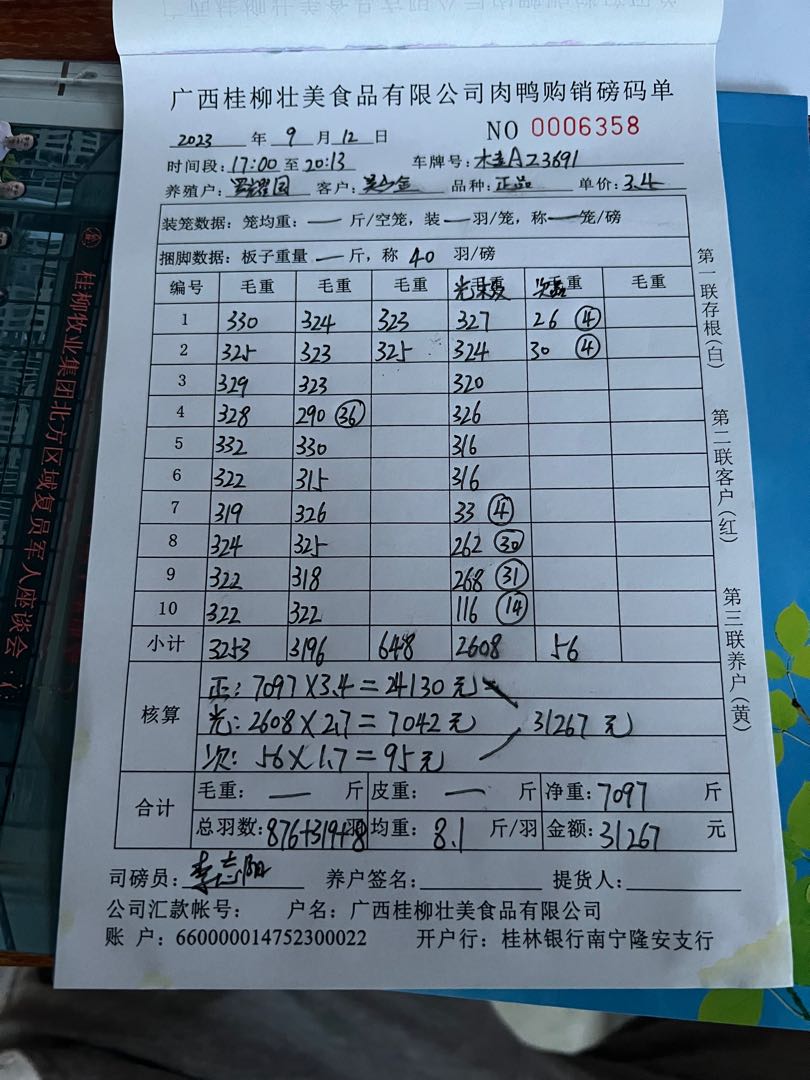 广西桂柳壮美食品有限公司肉鸭购销磅码单
2023 年 9 月 12 日 NO 0006358
时间段: 17:00 至 20:13 车牌号: 桂AZ3691
养殖户: 客户: 品种: 正品 单价: 3.4
装笼数据: 笼均重: — 斤/空笼, 装 — 羽/笼, 称 — 笼/磅
捆脚数据: 板子重量 — 斤, 称 40 羽/磅
编号 毛重 毛重 毛重 毛重 毛重 毛重
1 330 324 323 327 26 ④
2 325 323 325 324 30 ④
3 329 323 320
4 328 290 (36) 326
5 332 330 316
6 322 315 316
7 319 326 33 ④
8 324 325 262 (30)
9 322 318 268 (31)
10 322 322 116 (14)
小计 3253 3196 648 2608 56
核算
正: 7097 X 3.4 = 24130 元
光: 2608 X 2.7 = 7042 元 31267 元
次: 56 X 1.7 = 95 元
合计
毛重: — 斤 皮重: — 斤 净重: 7097 斤
总羽数: 876+319+8 羽 均重: 8.1 斤/羽 金额: 31267 元
司磅员: 李志阳 养户签名: 提货人:
公司汇款帐号: 户名: 广西桂柳壮美食品有限公司
账 户: 660000014752300022 开户行: 桂林银行南宁隆安支行
第一联存根(白)
第二联客户(红)
第三联养户(黄)
桂柳牧业集团北方区域复员军人座谈会